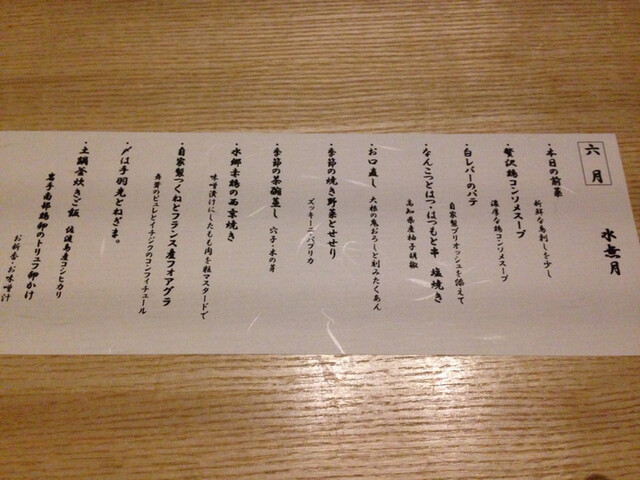 六月
水無月
・本日の前菜
新鮮な鳥刺しを少し
・贅沢鶏コンソメスープ
濃厚な鶏コンソメスープ
・白レバーのパテ
自家製ブリオッシュを添えて
・なんこつとはつ・はつもと串 塩焼き
高知県産柚子胡椒
・お口直し 大根の鬼おろしと刻みたくあん
・季節の焼き野菜とせせり
ズッキーニ・パプリカ
・季節の茶碗蒸し 穴子・木の芽
・水郷赤鶏の西京焼き
味噌漬けにしたもも肉を粒マスタードで
・自家製つくねとフランス産フォアグラ
のピュレとイチジクのコンフィチュール
・〆は手羽先とねぎま。
・土鍋釜炊きご飯 佐渡島産コシヒカリ
岩手南部鶏卵のトリュフ卵かけ
お新香・お味噌汁